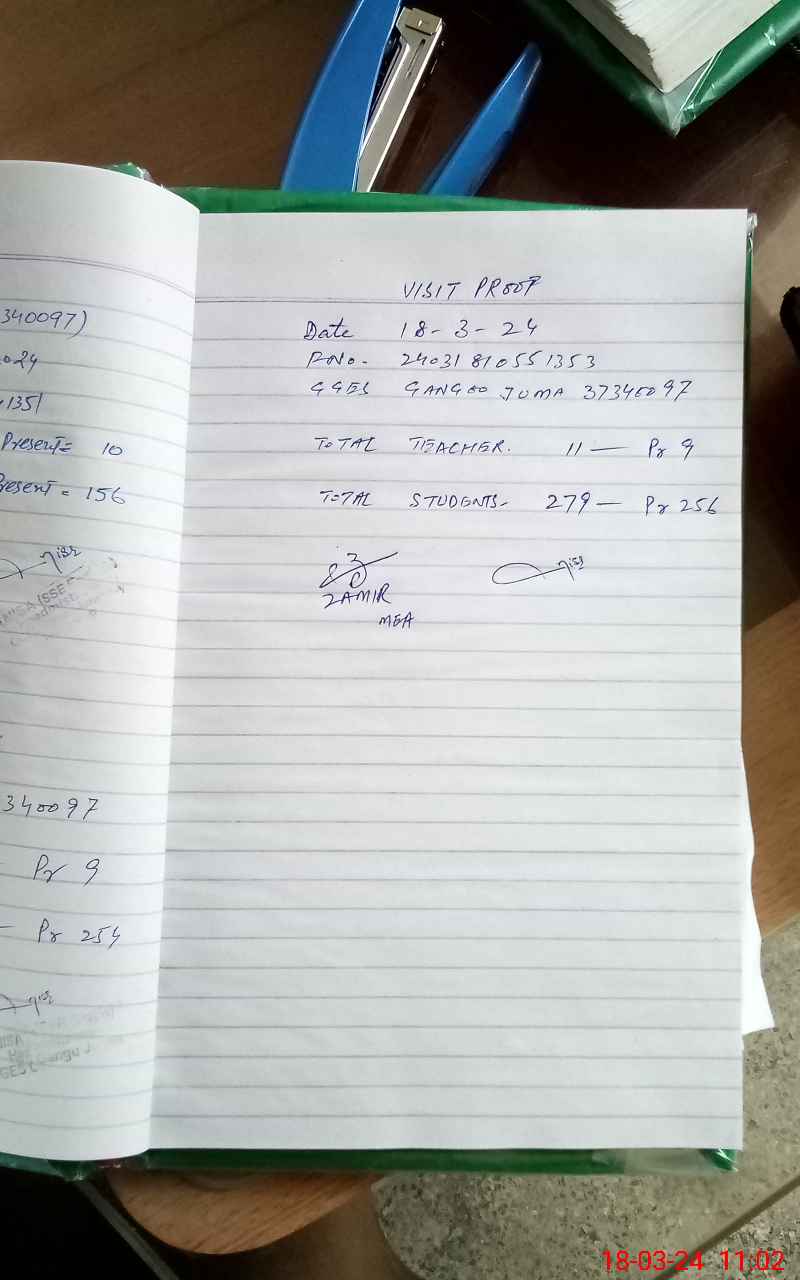 340097)
024
1351
Present = 10
Present = 156
340097
Pr 9
Pr 254
VISIT PROOF
Date 18-3-24
RNo. 24031810551353
GGES GANGOO JUMA 37340097
TOTAL TEACHER. 11 — Pr 9
TOTAL STUDENTS- 279 — Pr 256
ZAMIR
MEA
18-03-24 11:02